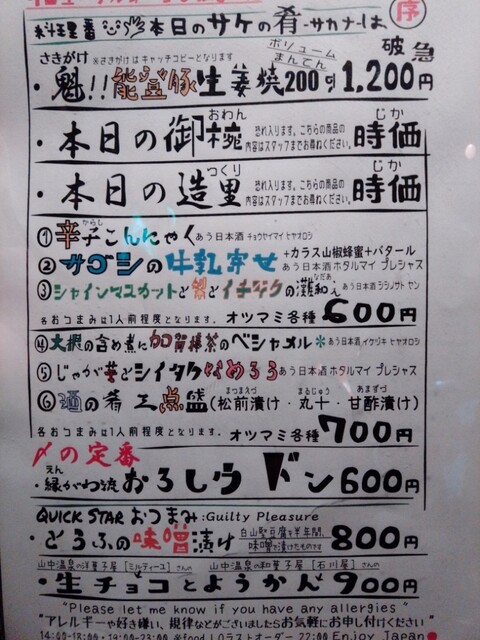 本日のサケの肴 -サカナ-は、
序
破 急
さきがけ ※さきがけはキャッチコピーとなります
ボリューム まんてん
・魁!!能登豚生姜焼200g 1,200円
おわん じか
・本日の御椀 恐れ入ります。こちらの商品の内容はスタッフまでお尋ねください。 時価
つくり じか
・本日の造里 恐れ入ります。こちらの商品の内容はスタッフまでお尋ねください。 時価
からし
①辛子こんにゃく あう日本酒 チョウセイマイ ヒヤオロシ
+カラス山椒蜂蜜+バタール
②サゴシの牛乳寄せ あう日本酒 ホタルマイ プレシャス
なだあ
③シャインマスカットと梨とイチヂクの灘和え あう日本酒 シシノサト ゼン
各おつまみは1人前程度となります。 オツマミ各種600円
④大根の含め煮に加賀棒茶のベシャメル* あう日本酒 イケツキ ヒヤオロシ
⑤じゃが芋とシイタケなめろう あう日本酒 ホタルマイ プレシャス
まつまえづ まるじゅう あまずづ
⑥酒の肴三点盛(松前漬け・丸十・甘酢漬け)
各おつまみは1人前程度となります。 オツマミ各種700円
〆の定番
えん
・縁がわ流おろしうドン600円
QUICK STAR おつまみ:Guilty Pleasure
・とうふの味噌漬け 白山堅豆腐を半年間、味噌で漬けたものです 800円
山中温泉の洋菓子屋[ミルティーユ]さんの 山中温泉の和菓子屋[石川屋]さんの
・生チョコとようかん 900円
"Please let me know if you have any allergies"
"アレルギーや好き嫌い、規律などございましたらお気軽にお申し付けください"
14:00-18:00・19:00-23:00 ※food L.Oラストオーダー22:00 Enjoy Japan